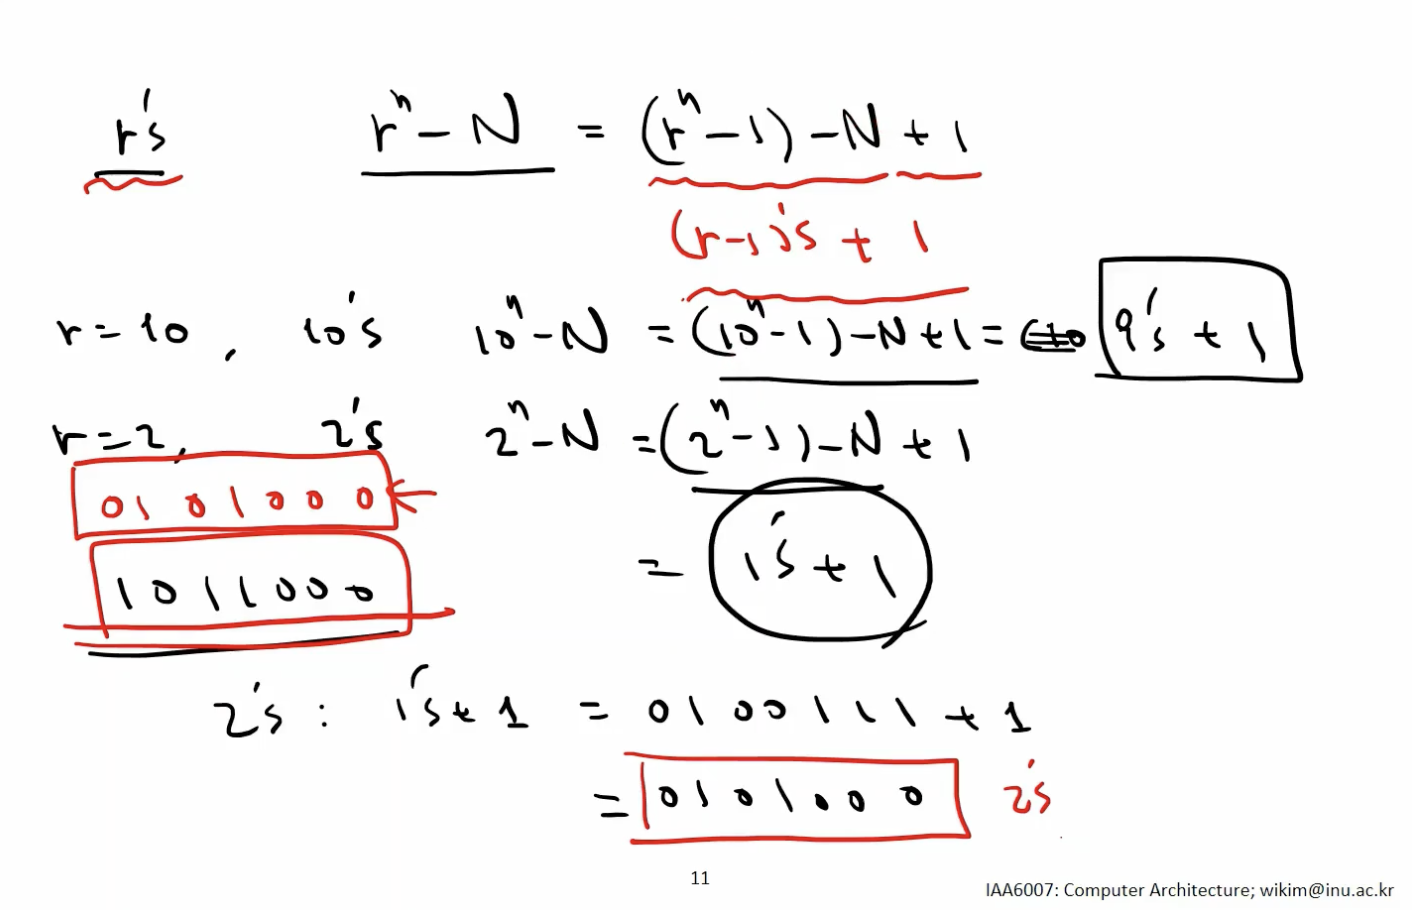 r's r^n - N = (r^n - 1) - N + 1
(r-1)'s + 1
r = 10, 10's 10^n - N = (10^n - 1) - N + 1 = 9's + 1
r = 2, 2's 2^n - N = (2^n - 1) - N + 1
0101000
1011000
= 1's + 1
2's : 1's + 1 = 0100111 + 1
= 0101000 2's
11
IAA6007: Computer Architecture; wikim@inu.ac.kr